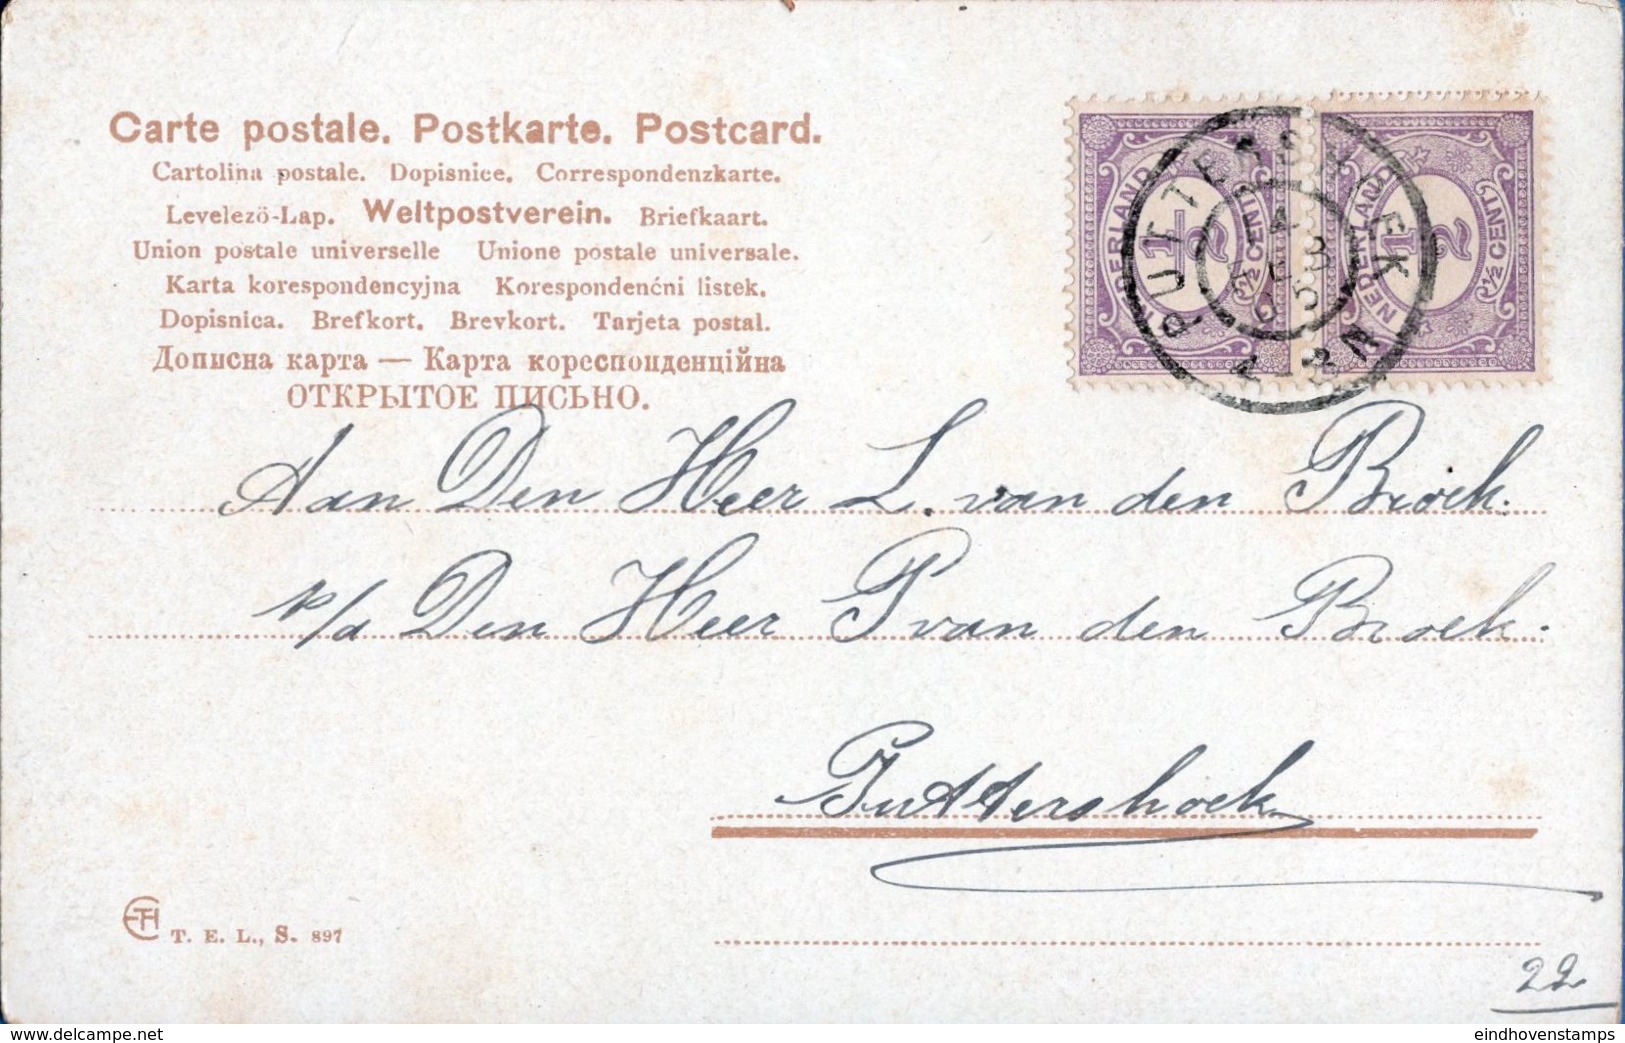 Carte postale. Postkarte. Postcard.
Cartolina postale. Dopisnice. Correspondenzkarte.
Levelezö-Lap. Weltpostverein. Briefkaart.
Union postale universelle Unione postale universale.
Karta korespondencyjna Korespondenćni listek.
Dopisnica. Brefkort. Brevkort. Tarjeta postal.
Дописна карта — Карта кореспонденційна
ОТКРЫТОЕ ПИСЬНО.
NEDERLAND ½ ½ CENT
NEDERLAND ½ ½ CENT
PUTTERSHOEK
Aan Den Heer L. van den Broek.
p/a Den Heer P van den Broek.
Puttershoek
ETH T. E. L., S. 897
22
delcampe.net
eindhovenstamps